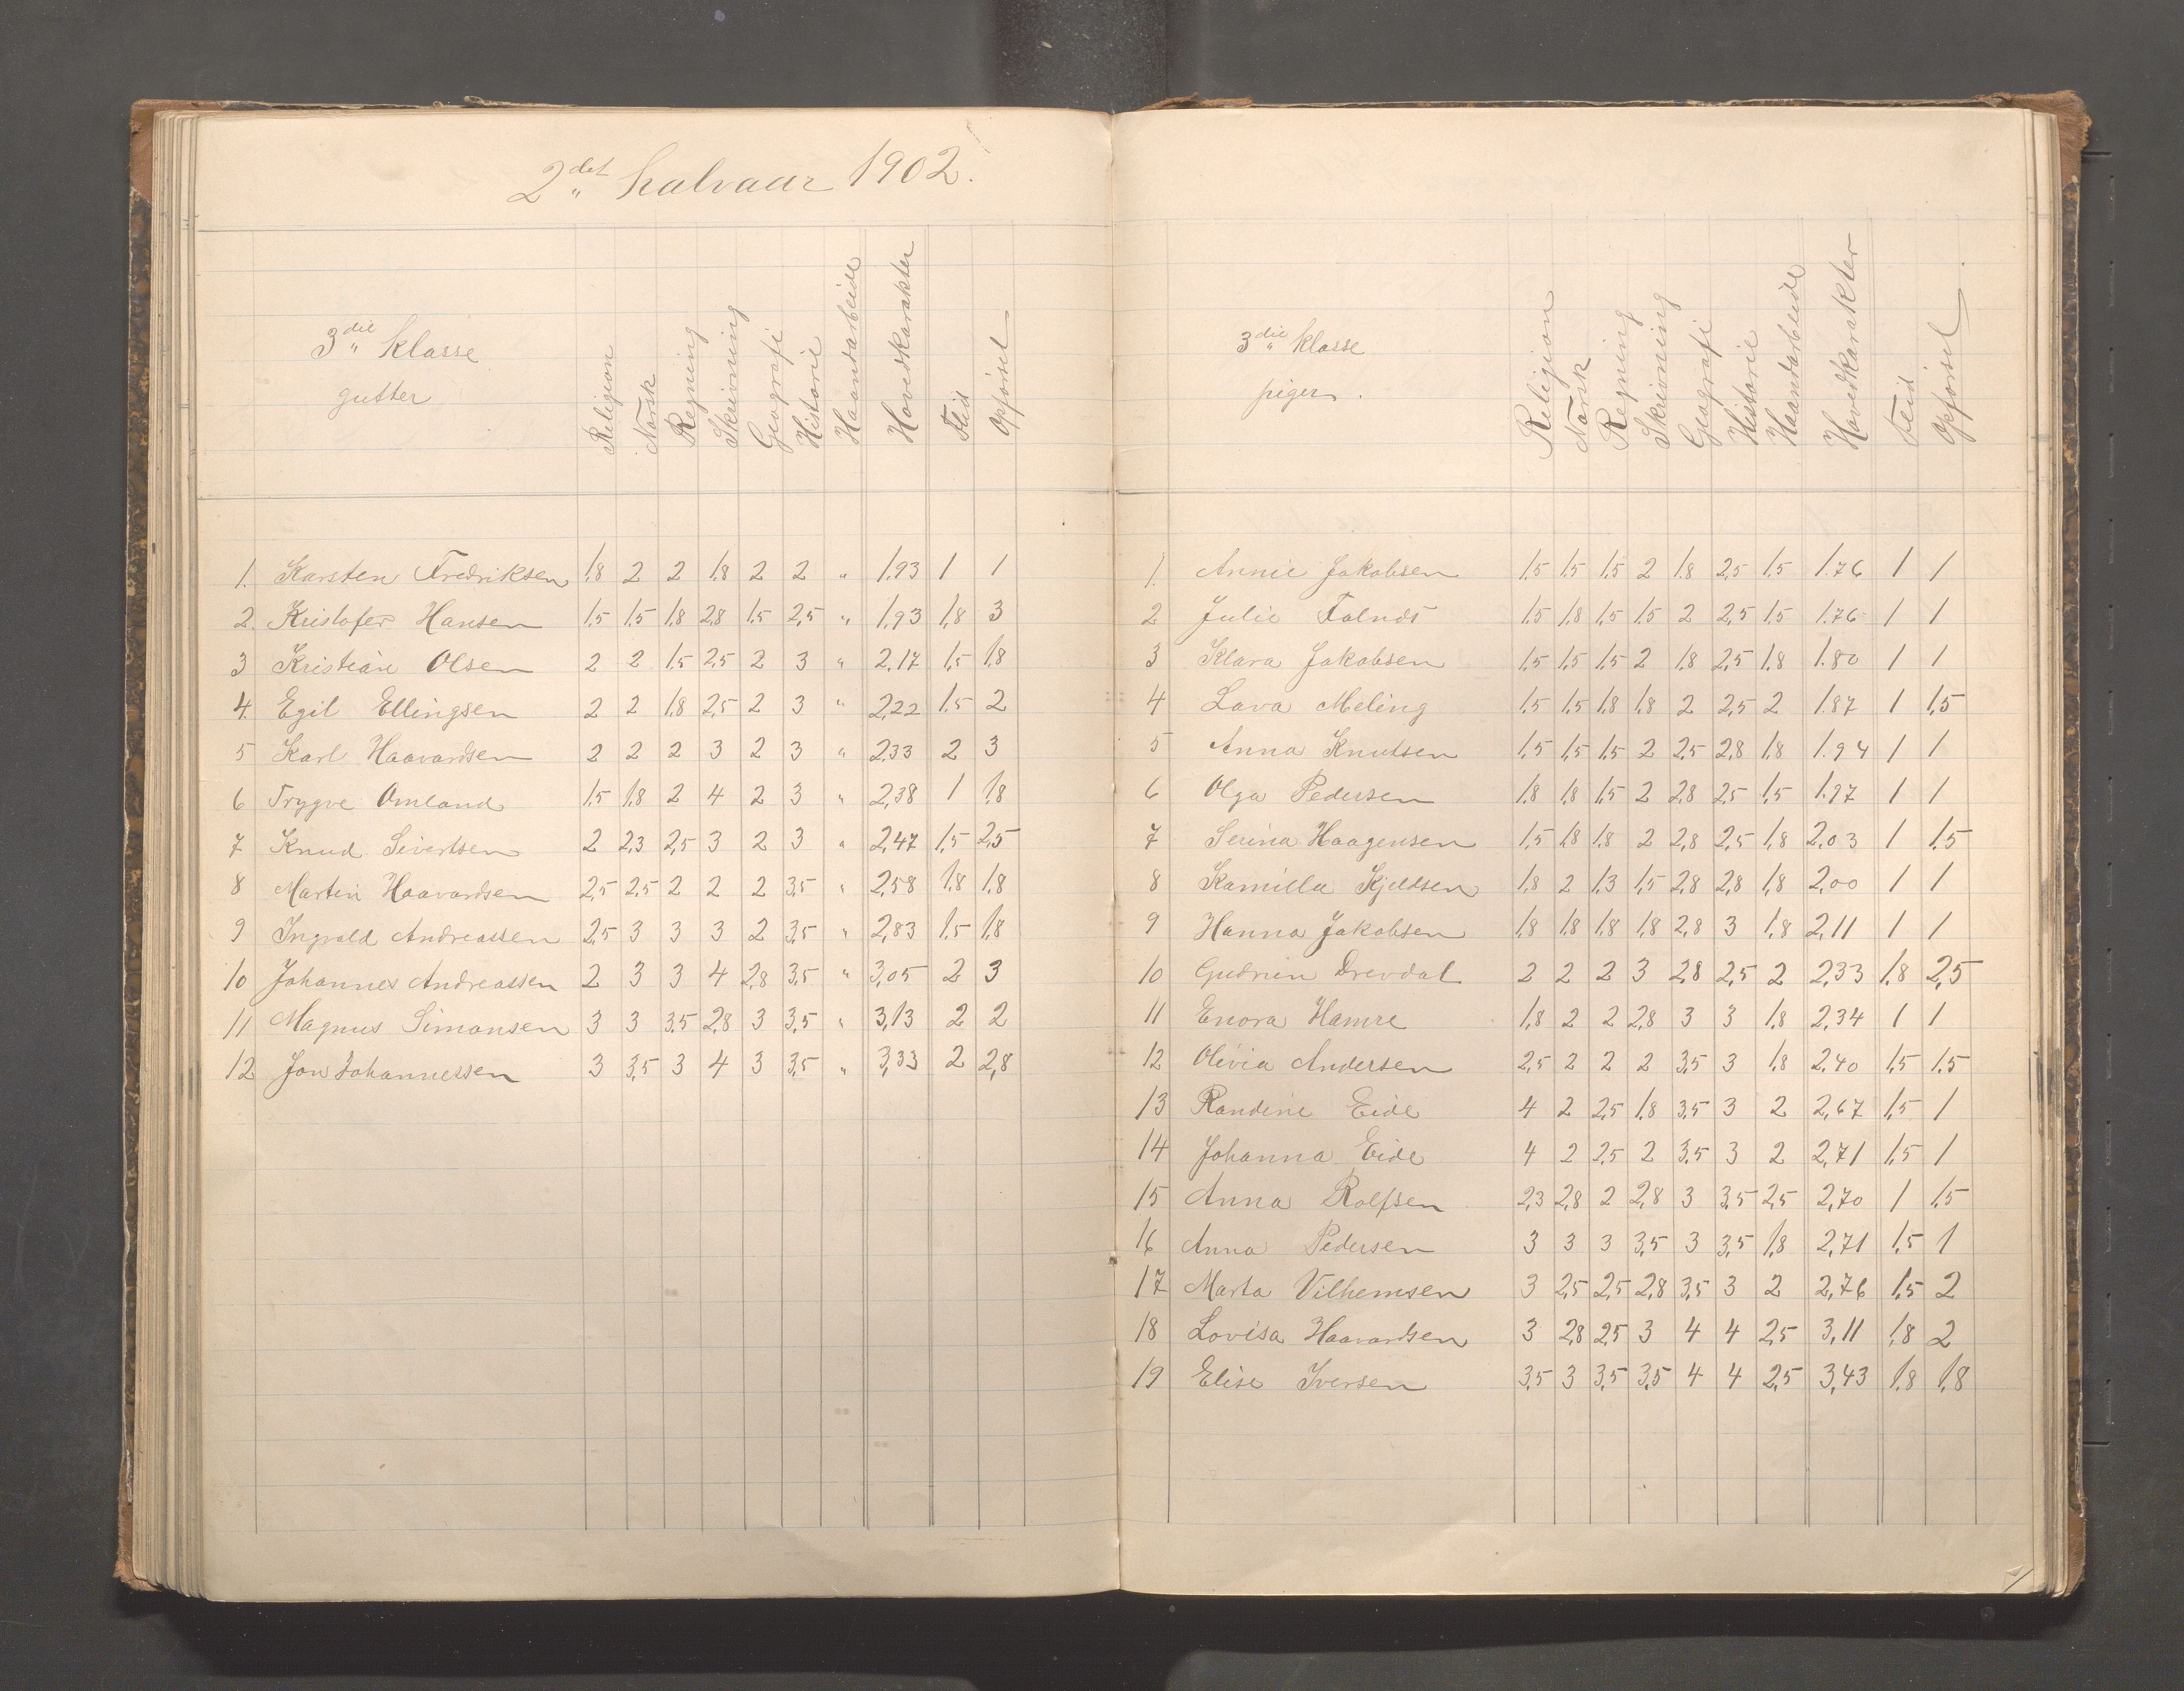 2det halvaar 1902.
3die klasse
gutter
Religion Norsk Regning Skrivning Geografi Historie Haandarbeide Hovedkarakter Flid Opførsel
1. Karsten Fredriksen 1,8 2 2 1,8 2 2 " 1,93 1 1
2. Kristofer Hansen 1,5 1,5 1,8 2,8 1,5 2,5 " 1,93 1,8 3
3 Kristian Olsen 2 2 1,5 2,5 2 3 " 2,17 1,5 1,8
4. Egil Ellingsen 2 2 1,8 2,5 2 3 " 2,22 1,5 2
5 Karl Haavardsen 2 2 2 3 2 3 " 2,33 2 3
6 Trygve Omland 1,5 1,8 2 4 2 3 " 2,38 1 1,8
7 Knud Sivertsen 2 2,3 2,5 3 2 3 " 2,47 1,5 2,5
8 Martin Haavardsen 2,5 2,5 2 2 2 3,5 " 2,58 1,8 1,8
9 Ingvald Andreassen 2,5 3 3 3 2 3,5 " 2,83 1,5 1,8
10 Johannes Andreassen 2 3 3 4 2,8 3,5 " 3,05 2 3
11 Magnus Simonsen 3 3 3,5 2,8 3 3,5 " 3,13 2 2
12 Jon Johannessen 3 3,5 3 4 3 3,5 " 3,33 2 2,8
3die klasse
piger.
Religion Norsk Regning Skrivning Geografi Historie Haandarbeide Hovedkarakter Flid Opførsel
1. Annie Jakobsen 1,5 1,5 1,5 2 1,8 2,5 1,5 1.76 1 1
2 Julie 1,5 1,8 1,5 1,5 2 2,5 1,5 1.76 1 1
3 Klara Jakobsen 1,5 1,5 1,5 2 1,8 2,5 1,8 1.80 1 1
4 Lava Meling 1,5 1,5 1,8 1,8 2 2,5 2 1.87 1 1,5
5 Anna Knutsen 1,5 1,5 1,5 2 2,5 2,8 1,8 1.94 1 1
6 Olga Pedersen 1,8 1,8 1,5 2 2,8 2,5 1,5 1.97 1 1
7 Serina Haagensen 1,5 1,8 1,8 2 2,8 2,5 1,8 2,03 1 1,5
8 Kamilla Kjeldsen 1,8 2 1,3 1,5 2,8 2,8 1,8 2,00 1 1
9 Hanna Jakobsen 1,8 1,8 1,8 1,8 2,8 3 1,8 2,11 1 1
10 Gudrun Drevdal 2 2 2 3 2,8 2,5 2 2,33 1,8 2,5
11 Enora Hamre 1,8 2 2 2,8 3 3 1,8 2,34 1 1
12 Olivia Andersen 2,5 2 2 2 3,5 3 1,8 2,40 1,5 1,5
13 Randine Eide 4 2 2,5 1,8 3,5 3 2 2,67 1,5 1
14 Johanna Eide 4 2 2,5 2 3,5 3 2 2,71 1,5 1
15 Anna Rolfsen 2,3 2,8 2 2,8 3 3,5 2,5 2,70 1 1,5
16 Anna Pedersen 3 3 3 3,5 3 3,5 1,8 2,71 1,5 1
17 Marta Vilhemsen 3 2,5 2,5 2,8 3,5 3 2 2,76 1,5 2
18 Lovisa Haavardsen 3 2,8 2,5 3 4 4 2,5 3,11 1,8 2
19 Elise Iversen 3,5 3 3,5 3,5 4 4 2,5 3,43 1,8 1,8